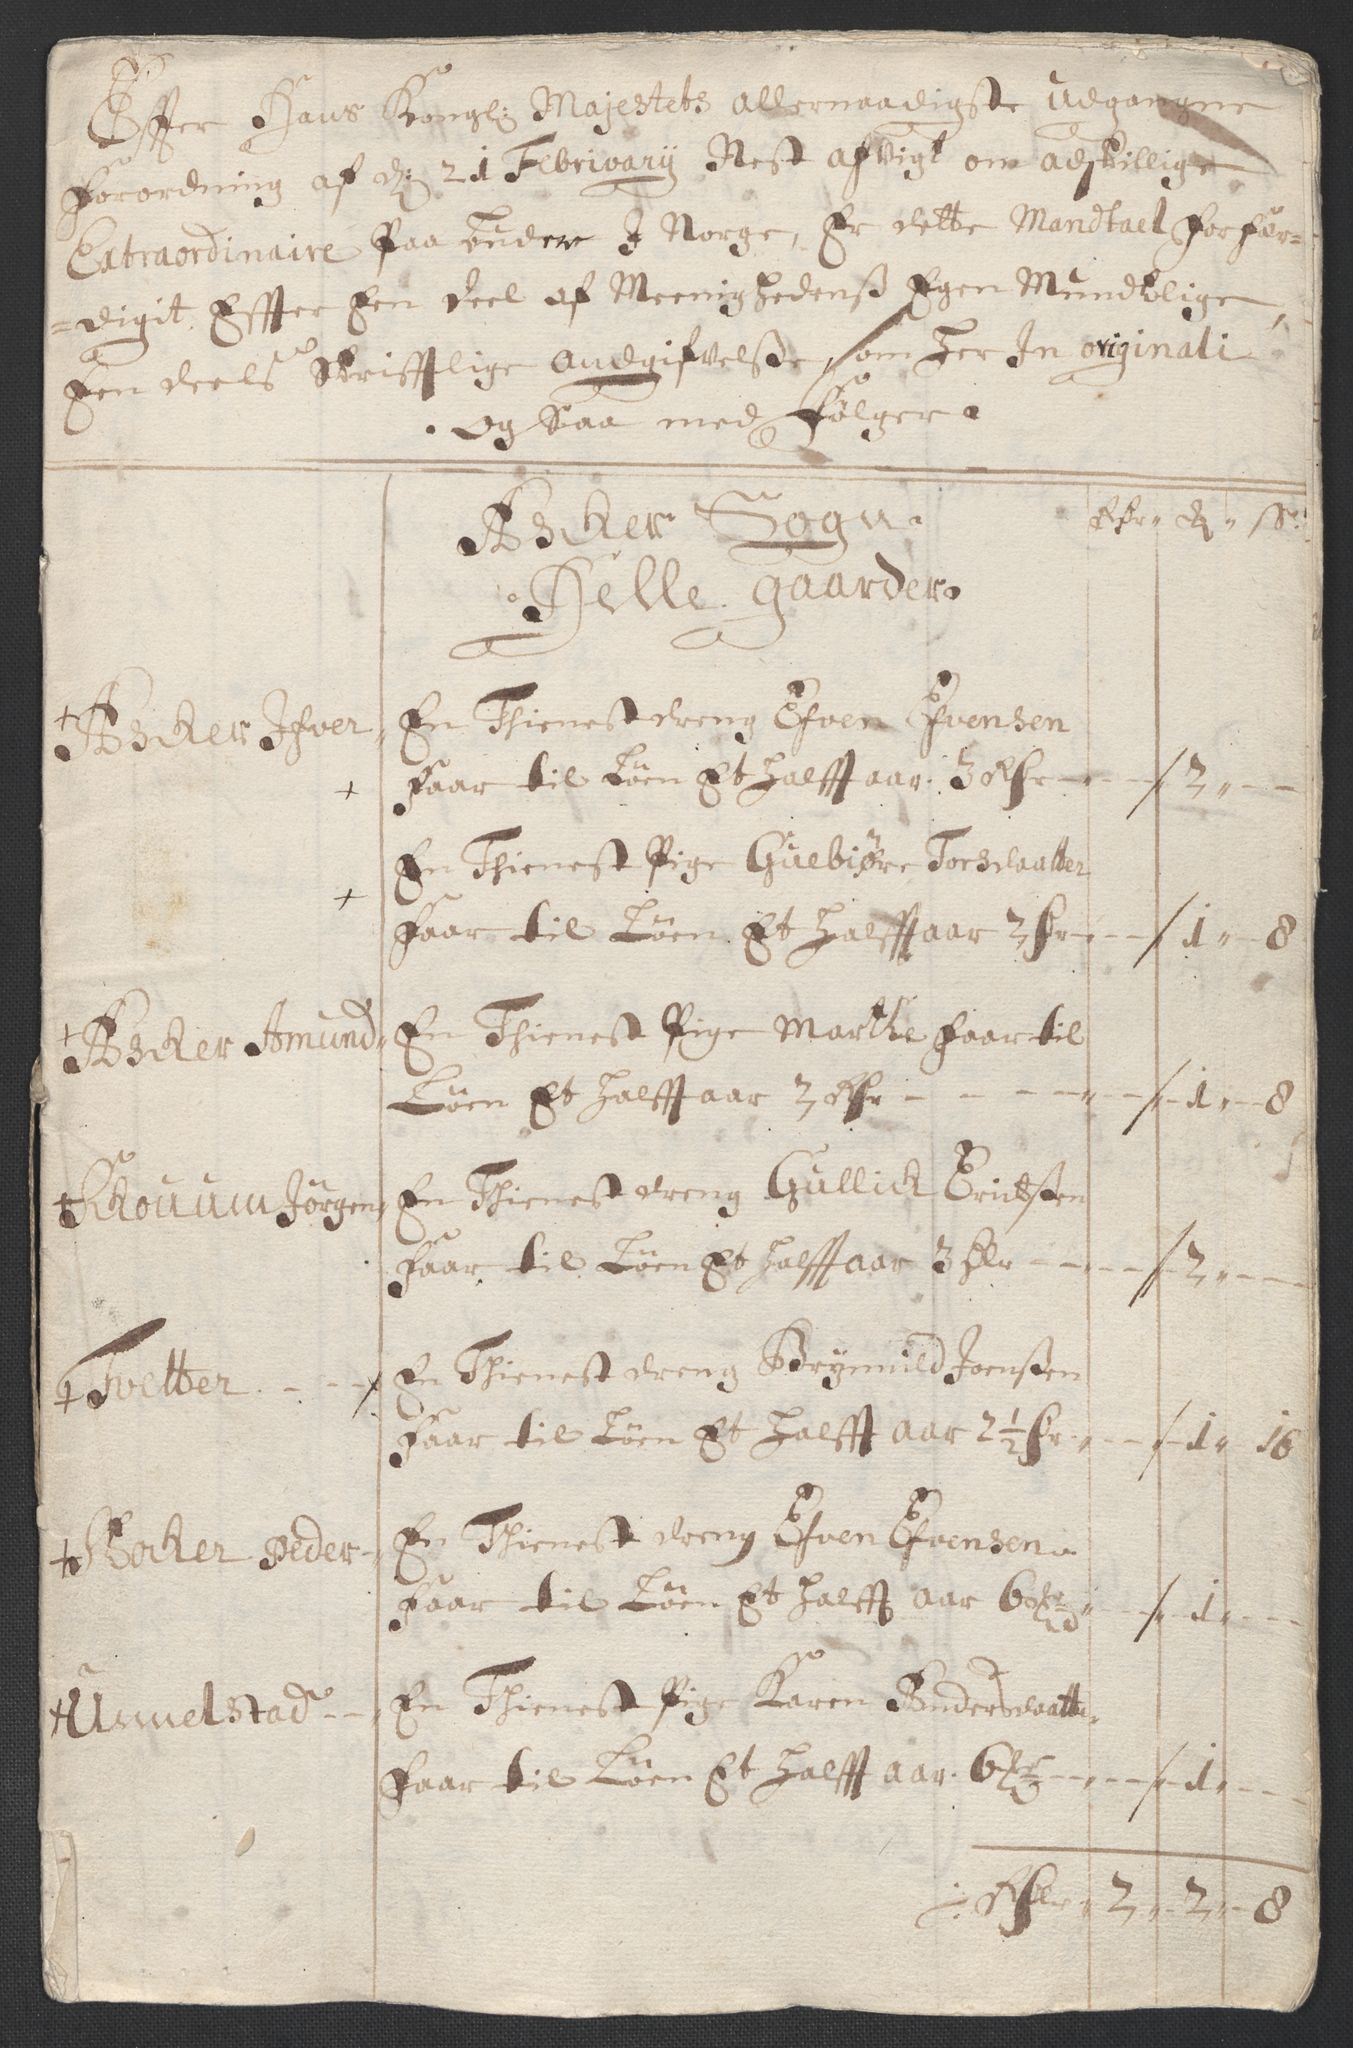 Effter Hans Kongl: Majestets allernaadigste Udgangne
forordning af d: 21 Februarij Nest afvigt om adskillige
Extraordinaire Paa buder I Norge, Er dette Mandtael forfær=
=digit Effter Een deel af Meenighedenß Egen Mundtlige,
Een deels Skrifftlige Andgifvelße, som her In originali
og saa med følger.
Asker Sogn.
Helle gaarder.
Rdr d: s:
Asker Ifver, En Thienest dreng Efven Efvensen
+ Faar til Löen Et halfft aar 3 Rdr - - - / 2 " - -
En Thienest Pige Guebiøre Torsdaatter
+ Faar til Löen Et halfft aar 2 dr - - / 1 " - 8
+ Asker Amund En Thienest Pige Marthe faar til
Löen Et halfft aar 2 Rdr - - - - / 1 " - 8
+ Skouum Jörgen, En Thienest dreng Gullich Erichsen
Faar til Löen Et halfft aar 3 dlr - - - / 2 " - -
+ Tvetter - - - En Thienest dreng Brynnild Joenßen
Faar til Löen Et halfft aar 2 1/2 dr - - / 1 " 16
+ Bocker Peder - En Thienest dreng Efven Efvensen
Faar til Löen Et halfft aar 6 - - / 1 " - -
+ Unnelstad - - En Thienest Pige Karen Andersdaatter
Faar til Löen Et halfft aar 6 - - - / 1 " - -
Rdlr " 2 " 2 " - 8